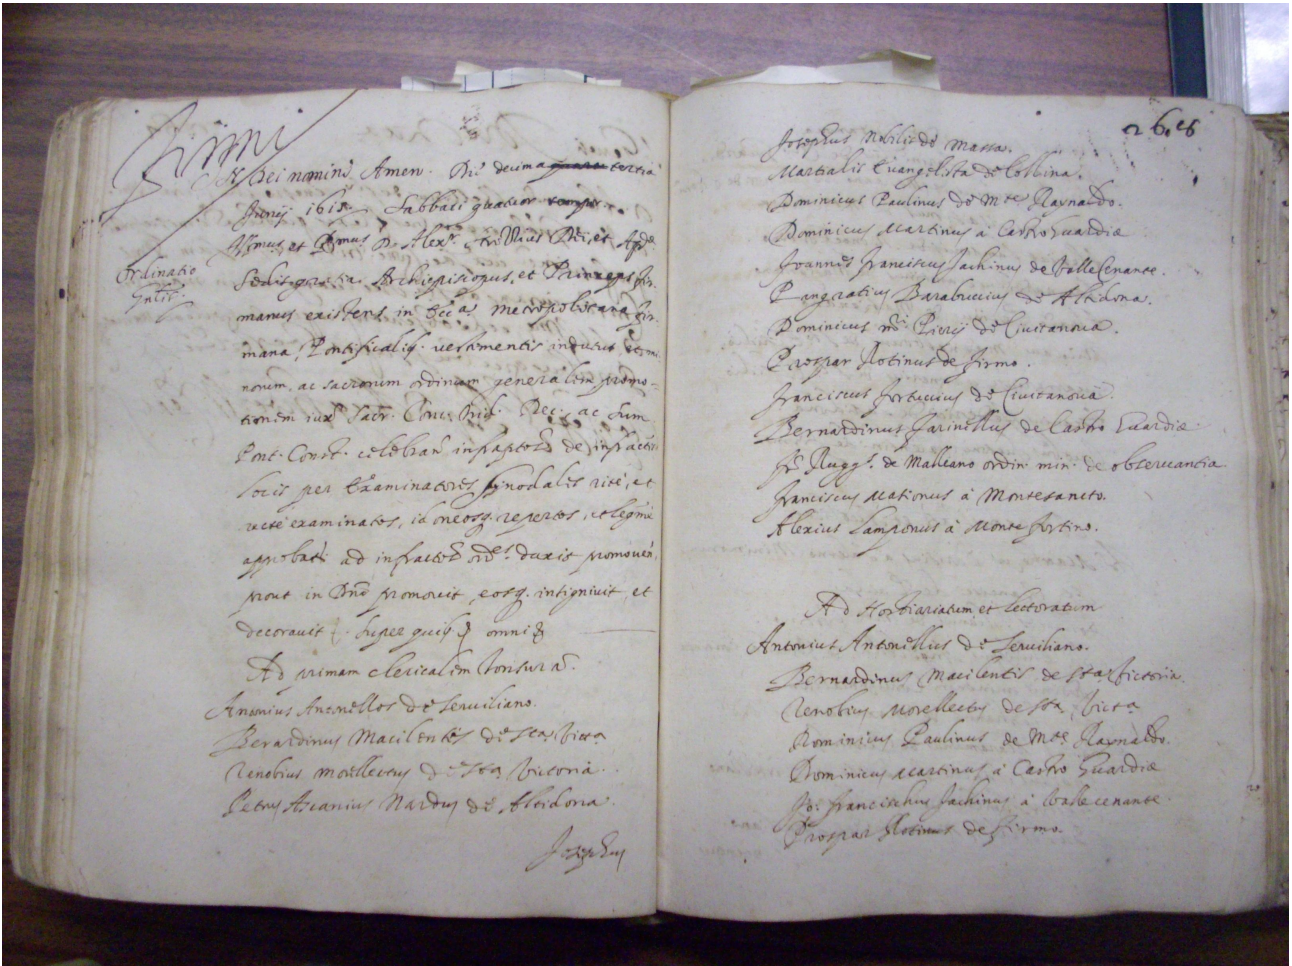 Firmi
In Dei nomine Amen. Die decima quarta tertia
Junij 161 Sabbati quatuor temp.
Ill.mus et R.mus D. Alex.r Dei, et Ap.ce
Ordinatio
Gnlis
Sedis gratia Archiepiscopus, et Princeps Fir.
manus existens in Ecc.a Metropolitana Fir.
mana, Pontificalib. vestimentis indutus, et mi.
norum, ac sacrorum ordinum generalem promo-
tionem iux. Sacr. Conc. Trid. Dec. ac Sum.
Pont. Const. celebran infraptos de infractis
locis per Examinatores synodales rite, et
recte examinatos, idoneosq. repertos, et legme
approbatos ad infractos ord.s duxit promoven,
prout in Dno promovit, eosq. insignivit, et
decoravit. Super quib. omni
Ad primam clericalem tonsuram.
Antonius Antonellos de Serviliano.
Berardinus Macilentis de sta Victa
Zenobius Morellectus de sta Victoria.
Petrus Ascanius Nardus de Altidona.
Josephus
Josephus Nobilis de Massa.
Martialis Evangelista de Collina.
Dominicus Paulinus de Mte Raynaldo.
Dominicus Martinus à Castro Guardiæ
Joannes Franciscus Jachinus de Valle Cenante.
Pangratius Barabuccius de Altidona.
Dominicus m.ri Pierij de Civitanova.
Prospar Rotinus de Firmo.
Franciscus Fortucius de Civitanova.
Bernardinus Farinellus de Castro Guardiæ.
Fr. Rugg. de Malleano ordin. min. de observantia
Franciscus Mationus à Montesancto.
Alexius Lamponus à Monte Fortino.
Ad Hostiariatum et lectoratum
Antonius Antonellius de Serviliano.
Bernardinus Macilentis de sta Victoria.
Zenobius Morellectus de sta Victa
Dominicus Paulinus de Mte Raynaldo.
Dominicus Martinus à Castro Guardiæ
Jo: Francischus Jachinus à Valle cenante.
Prospar Rotinus de Firmo.